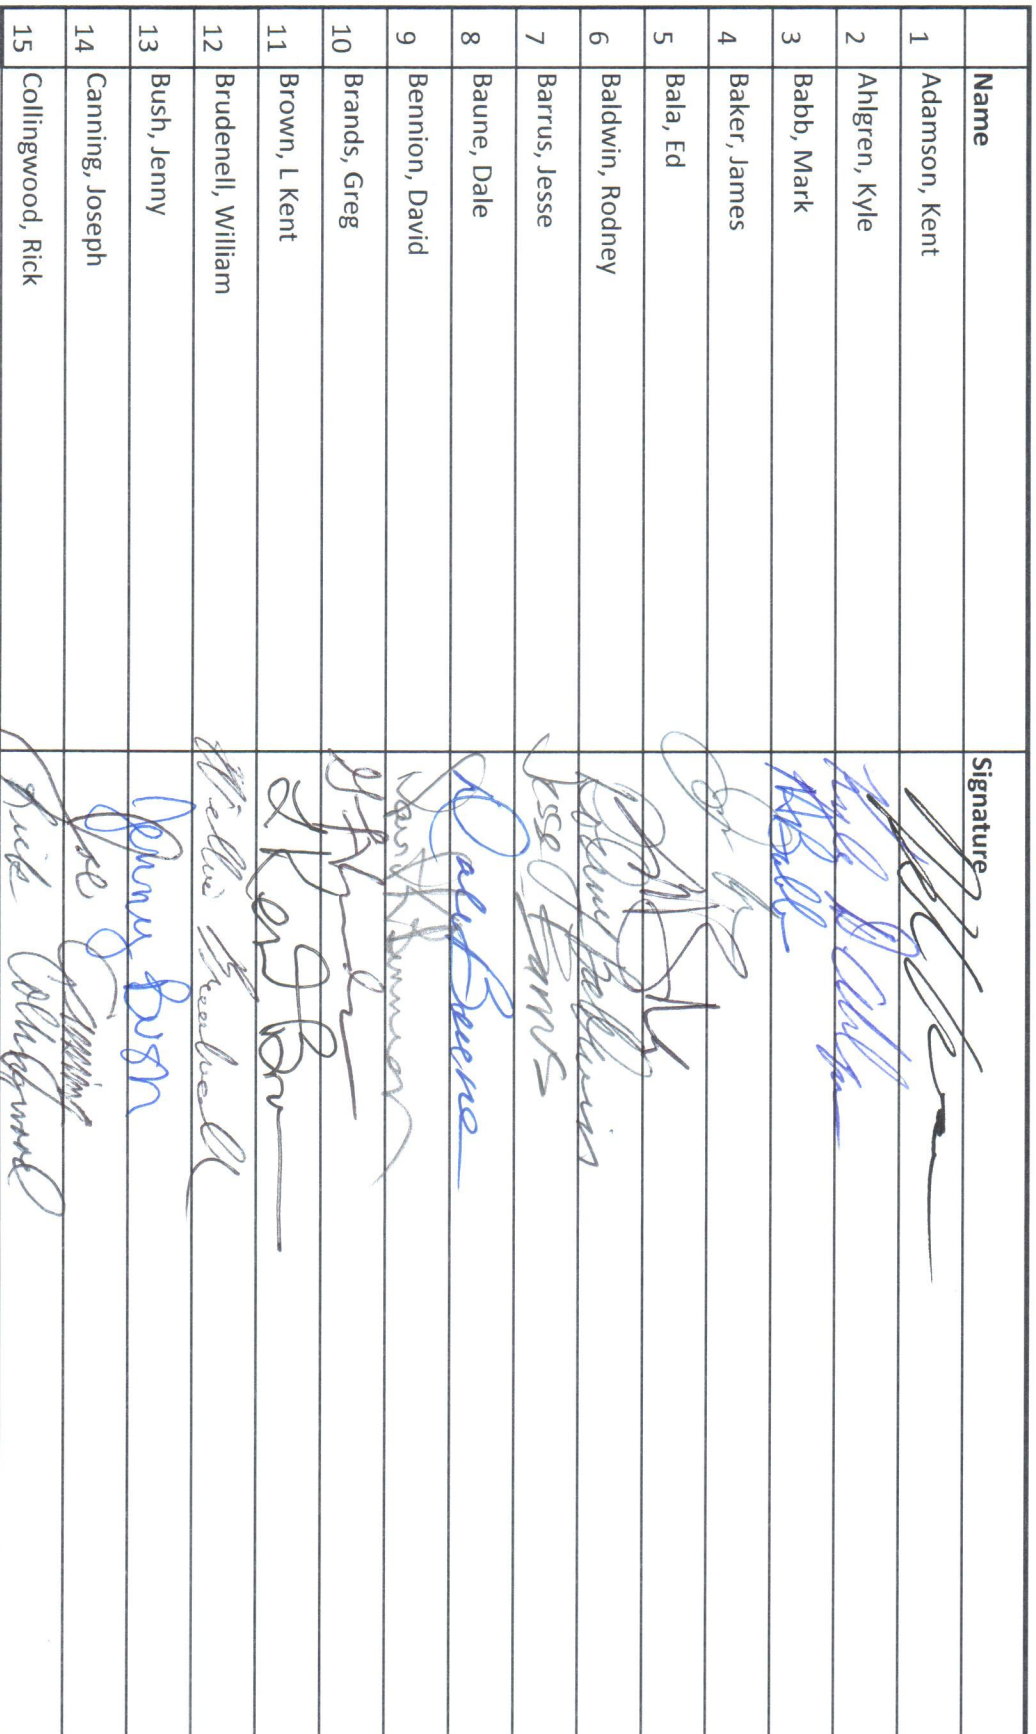 Name Signature
1 Adamson, Kent
2 Ahlgren, Kyle Kyle
3 Babb, Mark MBabb
4 Baker, James
5 Bala, Ed
6 Baldwin, Rodney Rodney Baldwin
7 Barrus, Jesse Jesse Barrus
8 Baune, Dale Dale Baune
9 Bennion, David David Bennion
10 Brands, Greg
11 Brown, L Kent L Kent Brown
12 Brudenell, William
13 Bush, Jenny Jenny Bush
14 Canning, Joseph Joe Canning
15 Collingwood, Rick Rick Collingwood